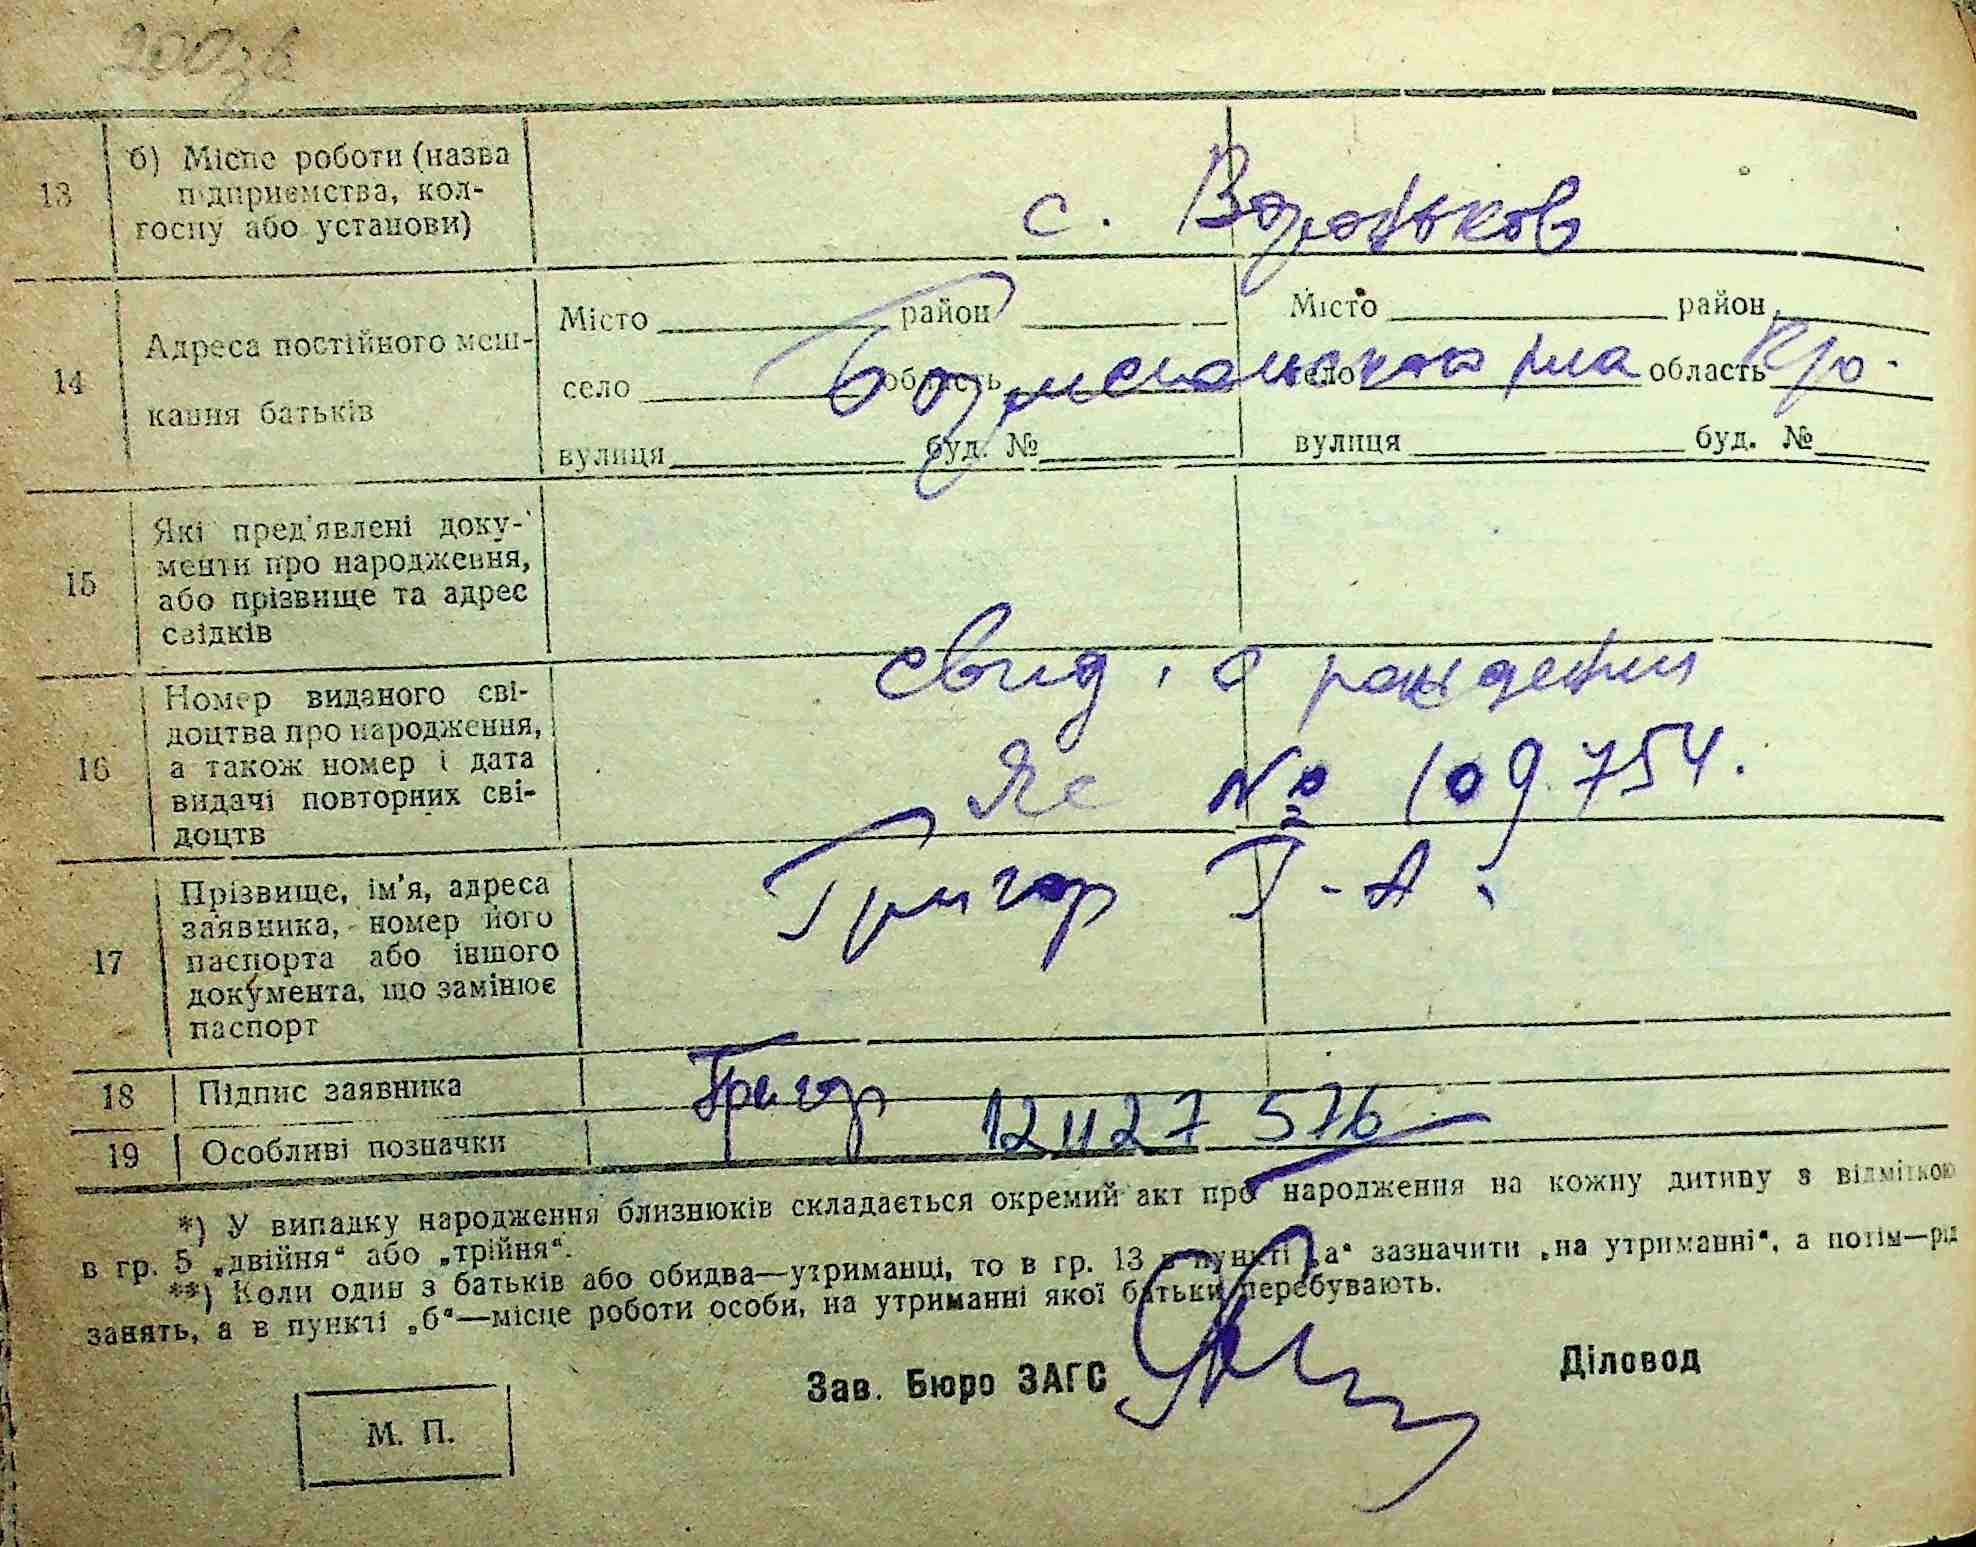 13
б) Місце роботи (назва
підприємства, кол-
госпу або установи)
с. Вороньков
14
Адреса постійного меш-
кання батьків
Місто район
село область
вулиця буд. №
Місто район
село область
вулиця буд. №
15
Які пред'явлені доку-
менти про народження,
або прізвище та адрес
свідків
16
Номер виданого сві-
доцтва про народження,
а також номер і дата
видачі повторних сві-
доцтв
свид. о рождении
№ 109754.
17
Прізвище, ім'я, адреса
заявника, номер його
паспорта або іншого
документа, що замінює
паспорт
Григор Г. А.
18 Підпис заявника
Григор
19 Особливі позначки
*) У випадку народження близнюків складається окремий акт про народження на кожну дитину з відміткою
в гр. 5 „двійня“ або „трійня“.
**) Коли один з батьків або обидва—утриманці, то в гр. 13 в пункті „а“ зазначити „на утриманні“, а потім—рід
занять, а в пункті „б“—місце роботи особи, на утриманні якої батьки перебувають.
Зав. Бюро ЗАГС
Діловод
М. П.